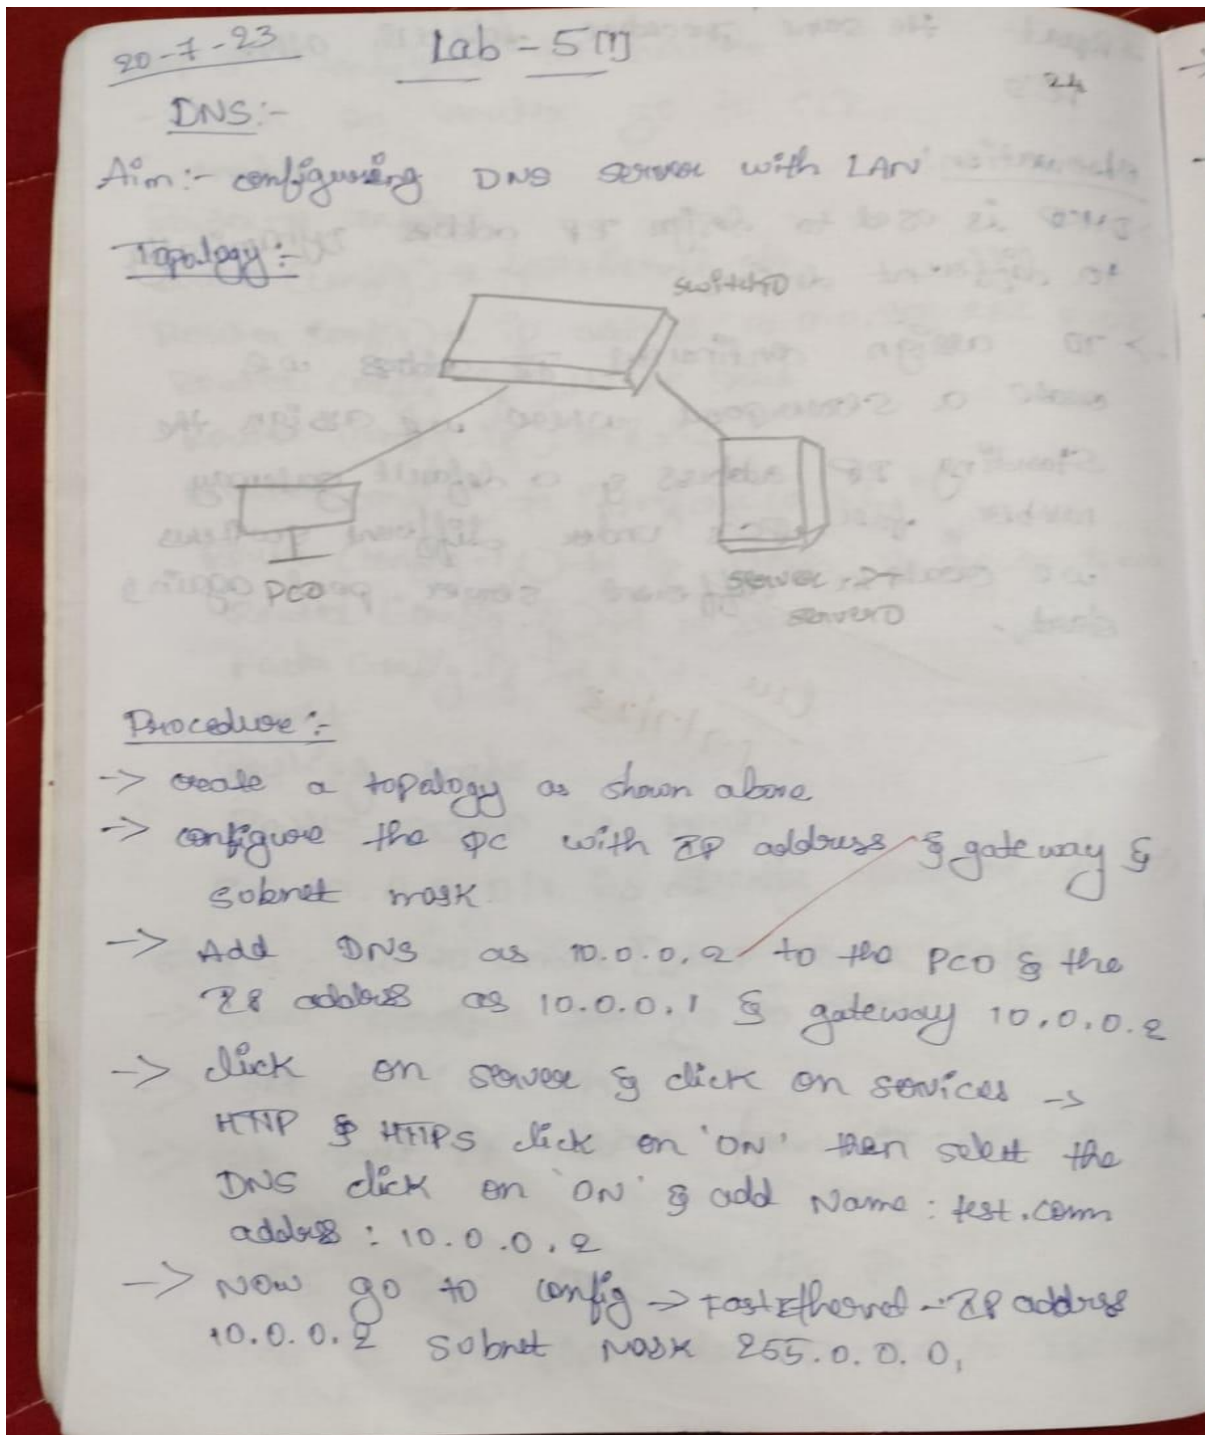 20-7-23
Lab - 5[1]
24
DNS:-
Aim:- configuring DNS server with LAN
Topology:-
switch0
PC0
server
server0
Procedure:-
-> create a topalogy as shown above
-> configure the PC with IP address & gateway &
subnet mask
-> Add DNS as 10.0.0.2 to the PC0 & the
IP address as 10.0.0.1 & gateway 10.0.0.2
-> click on server & click on services ->
HTTP & HTTPS click on 'ON' then selett the
DNS click on 'ON' & add Name: test.com
address: 10.0.0.2
-> Now go to config -> FastEthernet - IP address
10.0.0.2 subnet mask 255.0.0.0,